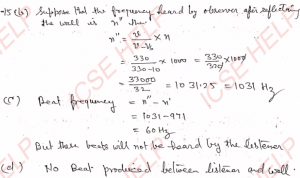 -15 (b) Suppose that the frequency heard by observer after reflecting
the wall is n″ the
n″ = v / v-vs × n
= 330 / 330-10 × 1000 = 330 / 320 × 1000
= 33000 / 32 = 1031.25 = 1031 Hz
(c) Beat frequency = n″ - n′
= 1031-971
= 60 Hz
But these beats will not be heard by the listener
(d) No Beat produced between listener and wall.
ICSE HELP
ICSE HELP